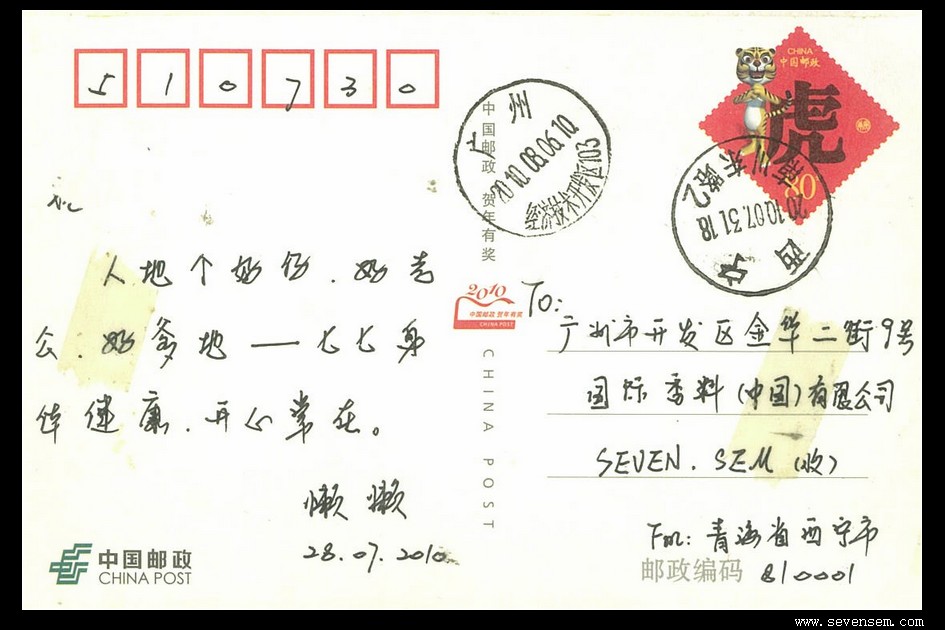 510730
CHINA
中国邮政
虎
80
广州
2010.08.06.10
经济技术开发区103
2010.07.31.18
西宁
中国邮政 贺年有奖
人地个好仔.好老
公.好爹地——七七身
体健康.开心常在。
懒懒
28.07.2010
2010
中国邮政 贺年有奖
CHINA POST
CHINA POST
To:
广州市开发区金华二街9号
国际香料(中国)有限公司
SEVEN.SEM (收)
From: 青海省西宁市
邮政编码 810001
中国邮政
CHINA POST
www.sevensem.com